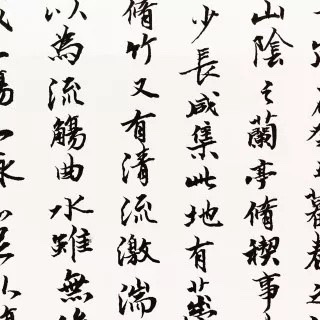 暮春之
山陰之蘭亭脩禊事
少長咸集此地有
脩竹又有清流激湍
以為流觴曲水雖無
觴一詠